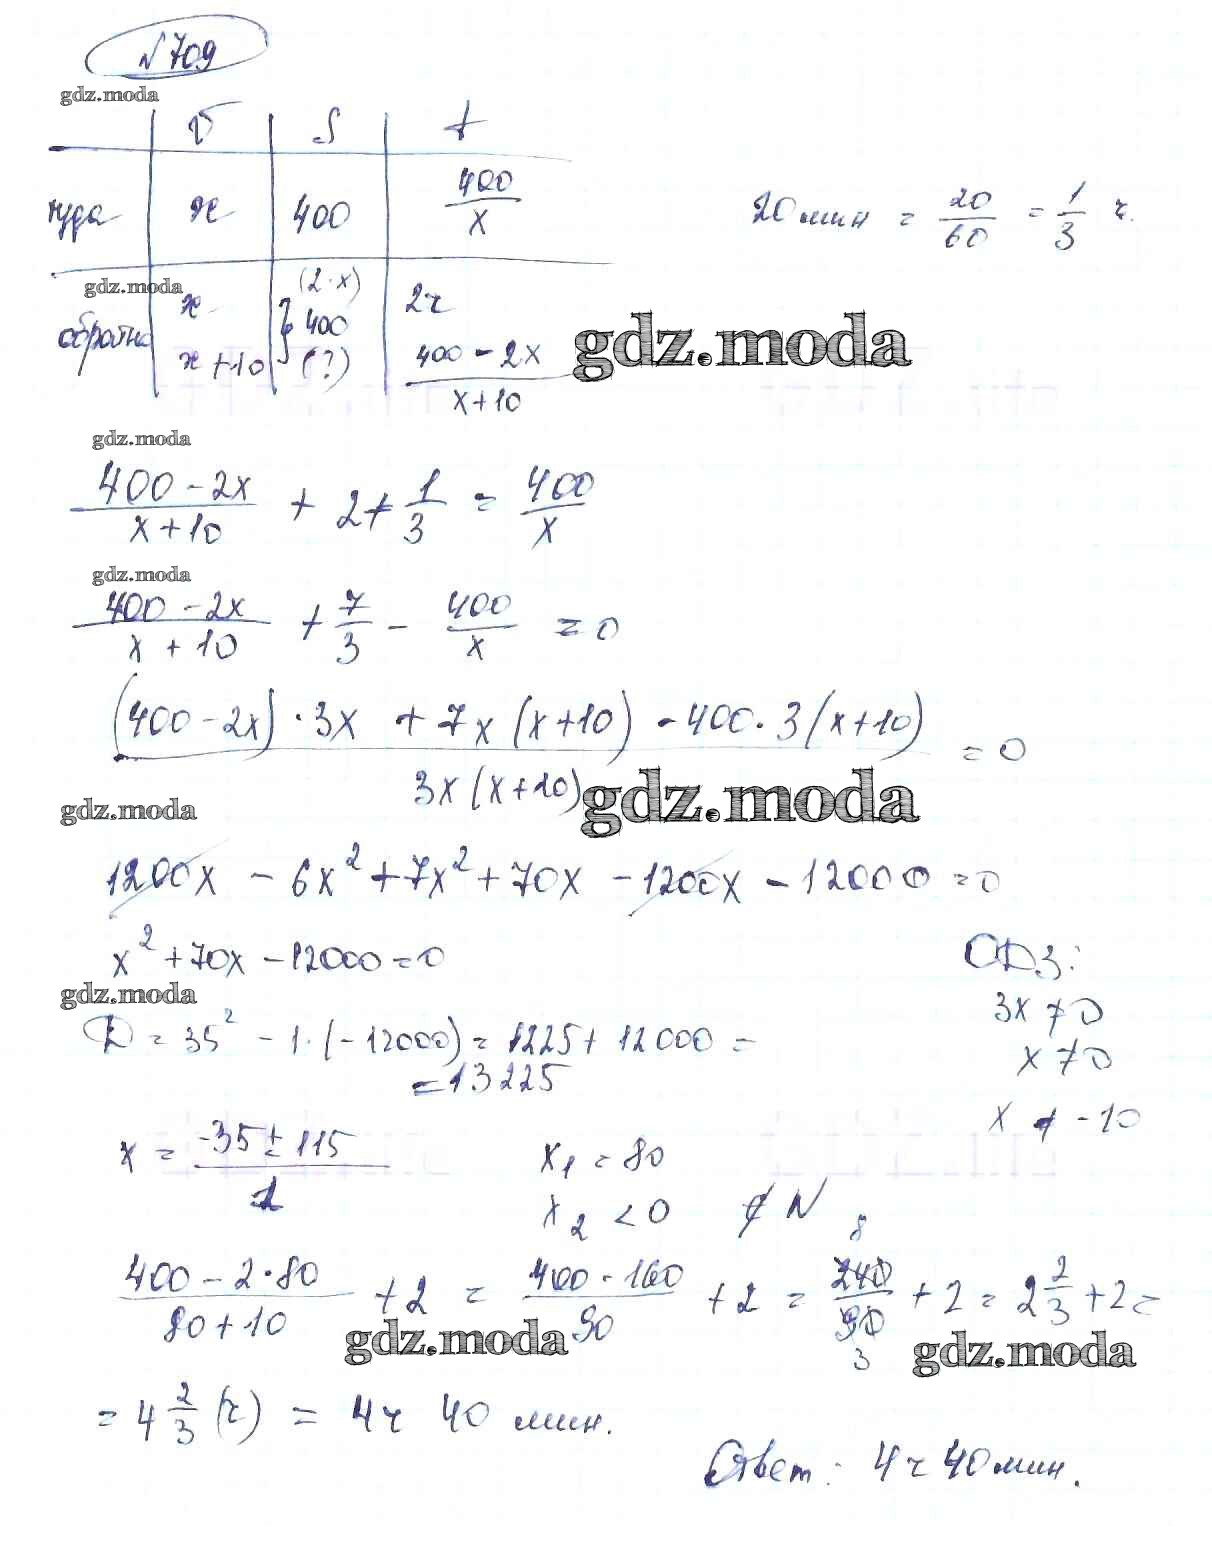 № 709
gdz.moda
v S t
туда x 400 400/x
20 мин = 20/60 = 1/3 ч.
gdz.moda
обратно x (2·x) 2ч
400
x+10 (?) (400 - 2x)/(x+10)
gdz.moda
gdz.moda
(400 - 2x)/(x+10) + 2 + 1/3 = 400/x
gdz.moda
(400 - 2x)/(x + 10) + 7/3 - 400/x = 0
((400 - 2x)·3x + 7x(x+10) - 400·3(x+10))/(3x(x+10)) = 0
gdz.moda
gdz.moda
1200x - 6x² + 7x² + 70x - 1200x - 12000 = 0
x² + 70x - 12000 = 0
ОДЗ:
gdz.moda
3x ≠ 0
D = 35² - 1·(-12000) = 1225 + 12000 =
x ≠ 0
= 13225
x ≠ -10
x = (-35 ± 115)/1
x₁ = 80
x₂ < 0 ∉ N
(400 - 2·80)/(80+10) + 2 = (400 - 160)/90 + 2 = 240/90 + 2 = 2 2/3 + 2 =
8
3
gdz.moda
gdz.moda
= 4 2/3 (ч) = 4ч 40 мин.
Ответ: 4ч 40мин.